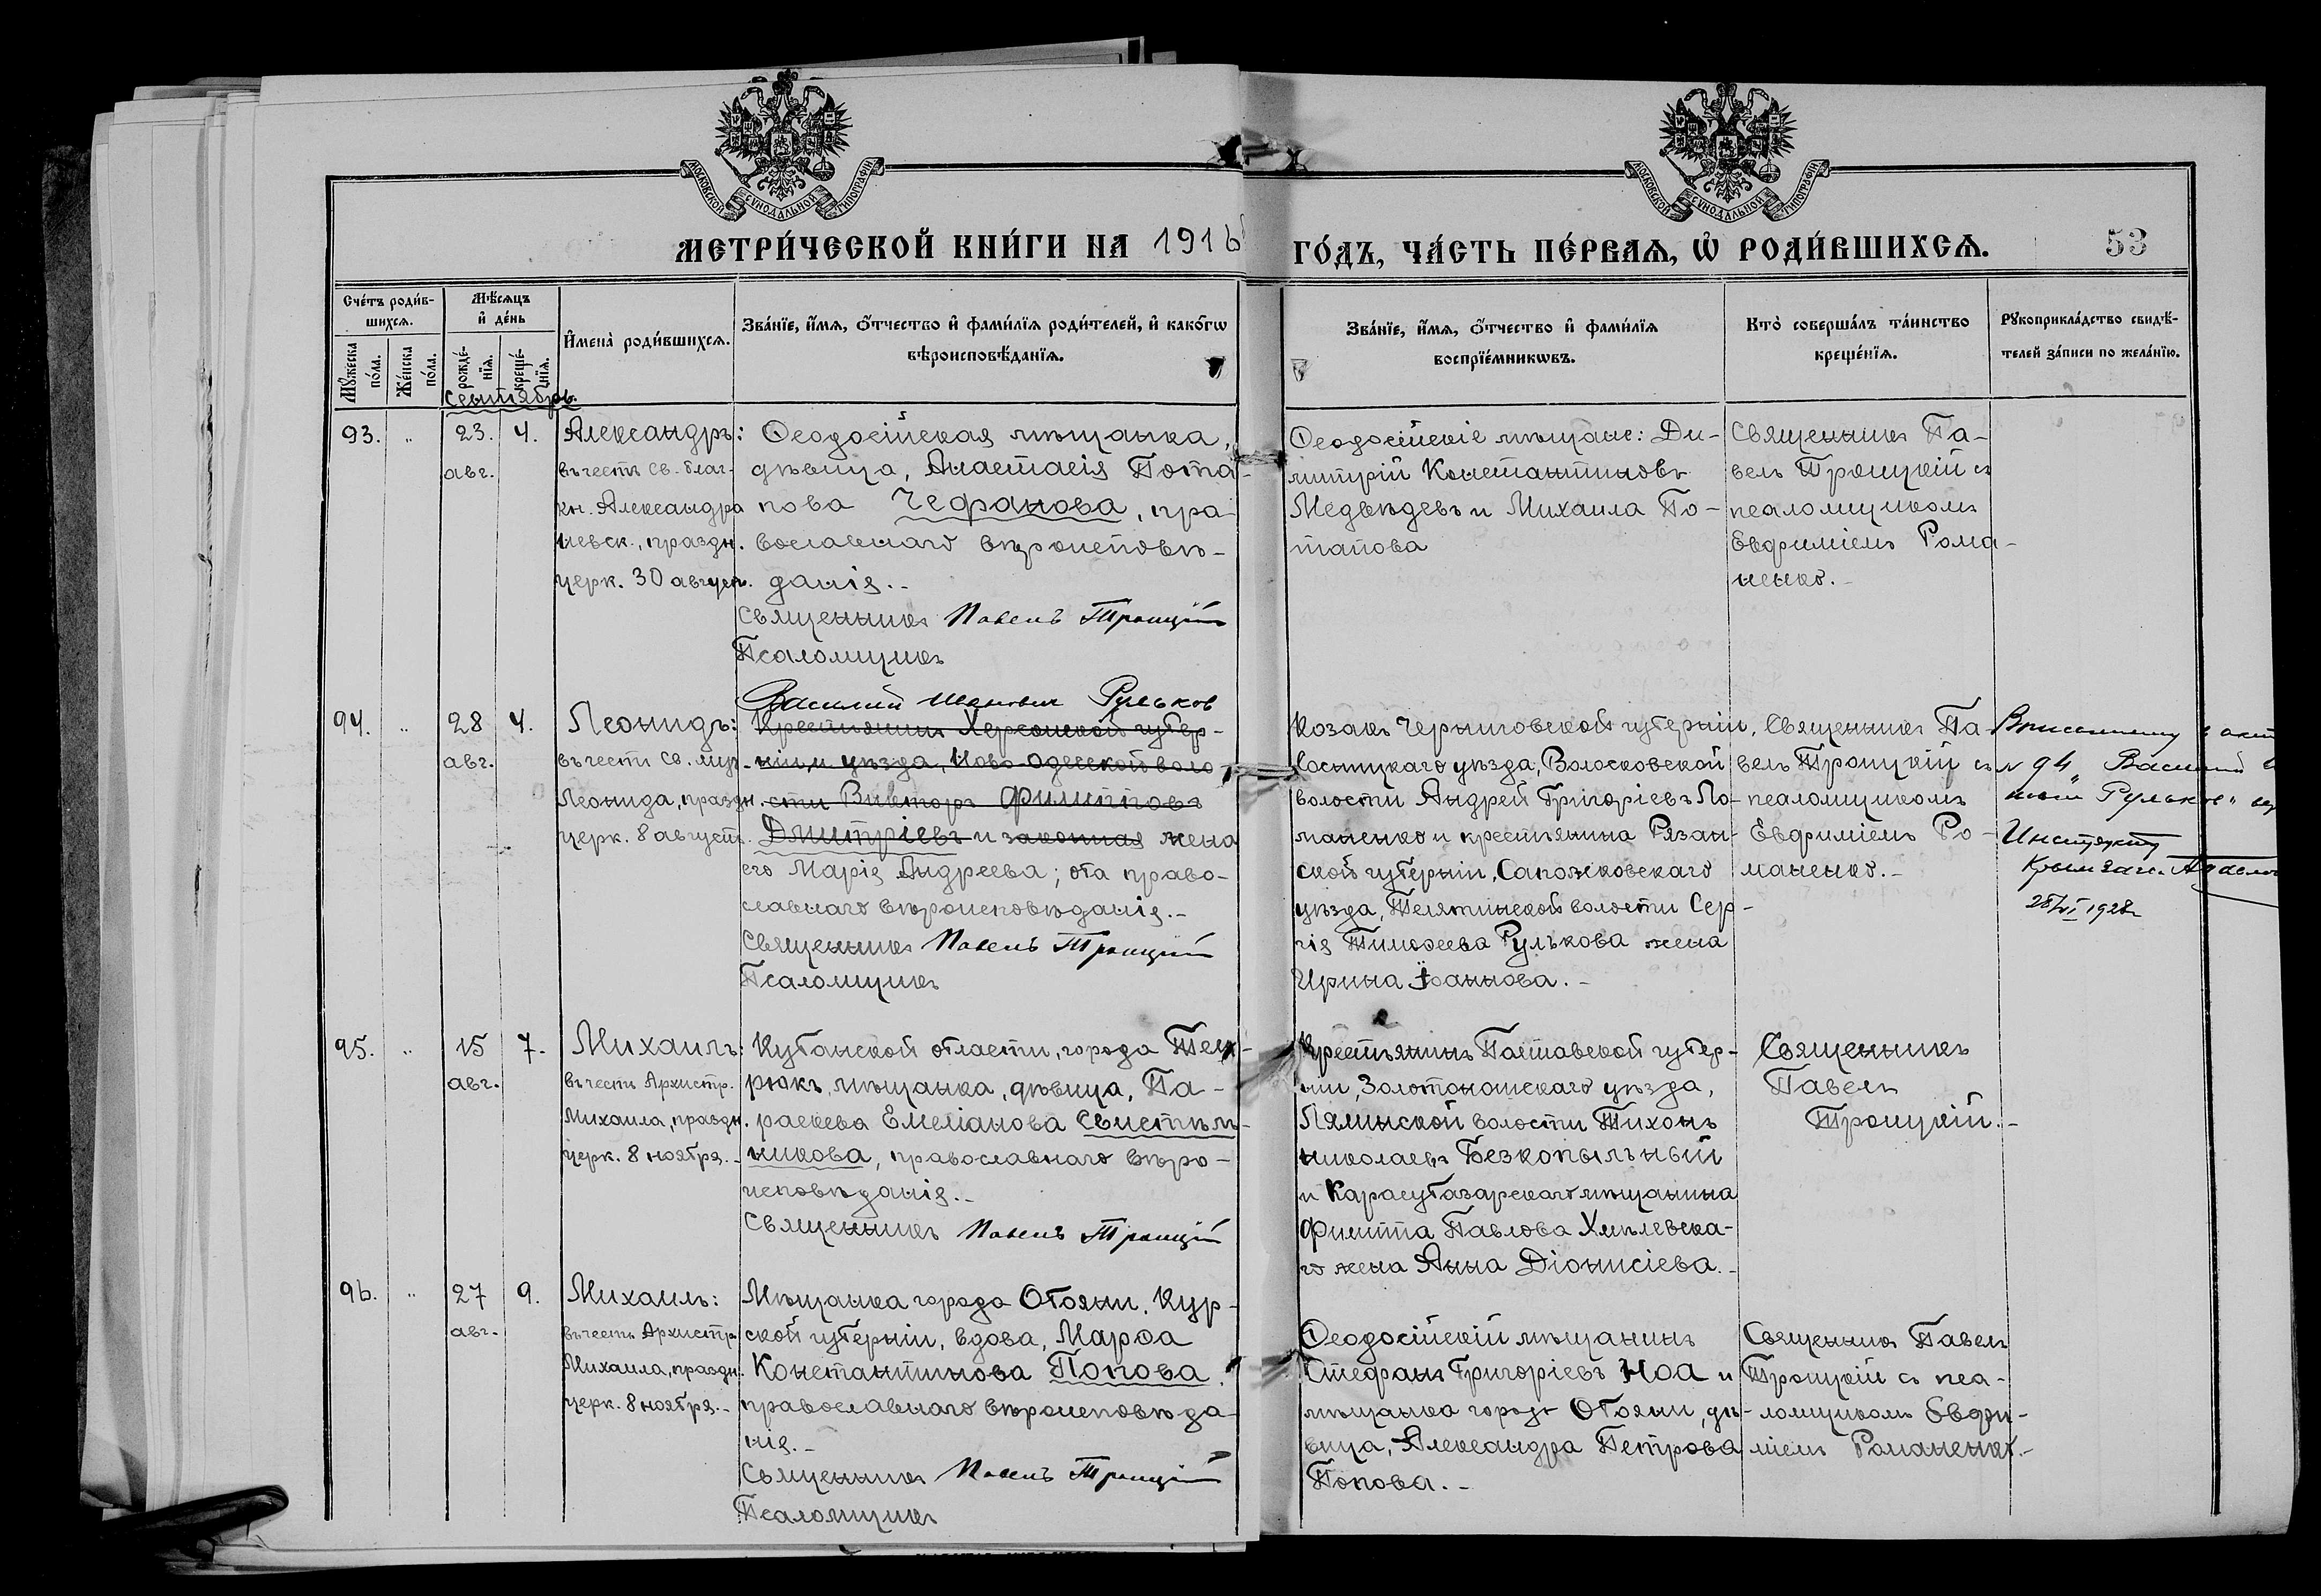 МОСКОВСКОЙ СѴНОДАЛЬНОЙ ТИПОГРАФІИ
МОСКОВСКОЙ СѴНОДАЛЬНОЙ ТИПОГРАФІИ
МЕТРИ́ЧЕСКОЙ КНИ́ГИ НА 1916
ГО́ДЪ, ЧА́СТЬ ПЕ́РВАѦ, Ѡ҆ РОДИ́ВШИХСѦ.
53
Сче́тъ роди́в-
шихсѧ.
Мꙋ́жеска по́ла.
Же́нска по́ла.
Мѣ́сѧцъ
и҆ де́нь
рожде́-
нїѧ.
креще́-
нїѧ.
Сентябрь.
И҆мена̀ роди́вшихсѧ.
Зва́нїе, и҆́мѧ, ѻ҆́тчество и҆ фами́лїѧ роди́телей, и҆ како́гѡ
вѣроисповѣ́данїѧ.
Зва́нїе, и҆́мѧ, ѻ҆́тчество и҆ фами́лїѧ
воспрїе́мникѡвъ.
Кто̀ соверша́лъ та́инство
креще́нїѧ.
Рꙋкоприкла́дство свидѣ́-
телей за́писи по жела́нїю.
93. „ 23. 4.
авг.
Александръ:
въ честь Св. благ.
кн. Александра
Невск., праздн.
церк. 30 август.
Ѳеодосійская мѣщанка,
дѣвица, Анастасія Пота-
пова Чефанова, пра-
вославнаго вѣроисповѣ-
данія.-
Священникъ Павелъ Троицкій
Псаломщикъ
Ѳеодосійскіе мѣщане: Ди-
митрій Константиновъ
Медвѣдевъ и Михаила По-
тапова
Священникъ Па-
велъ Троицкій съ
псаломщикомъ
Евфиміемъ Рома-
ненко.-
94. „ 28 4.
авг.
Леонидъ:
въ честь Св. муч.
Леонида, праздн.
церк. 8 август.
Василий Иванович Рульков
Крестьянинъ Херсонской губер-
ніи и уѣзда, Ново-Одесской воло-
сти Викторъ Филипповъ
Дмитріевъ и законная жена
его Марія Андреева; оба право-
славнаго вѣроисповѣданія.-
Священникъ Павелъ Троицкій
Псаломщикъ
Козакъ Черниговской губерніи,
Сосницкаго уѣзда, Волосковской
волости Андрей Григоріевъ Ро-
маненко и крестьянина Рязан-
ской губерніи, Сапожковскаго
уѣзда, Телятинской волости Сер-
гія Тимоѳеева Рулькова жена
Ирина Іоаннова.-
Священникъ Па-
велъ Троицкій съ
псаломщикомъ
Евфиміемъ Ро-
маненко.-
Вписанному
N 94 Василий
Рульков"
28/VI 1928г
95. „ 15 7.
авг.
Михаилъ:
въ честь Архистр.
Михаила, праздн.
церк. 8 ноября.-
Кубанской области, города Тем-
рюкъ, мѣщанка, дѣвица, Па-
раскева Емеліанова Свистѣль-
никова, православнаго вѣро-
исповѣданія.-
Священникъ Павелъ Троицкій
Крестьянинъ Полтавской губер-
ніи, Золотоношскаго уѣзда,
волости Тихонъ
Николаевъ Безкопыльный
и Карасубазарскаго мѣщанина
Филиппа Павлова Хмѣлевска-
го жена Анна Діонисіева.-
Священникъ
Павелъ
Троицкій.-
96. „ 27 9.
авг.
Михаилъ:
въ честь Архистр.
Михаила, праздн.
церк. 8 ноября.-
Мѣщанка города Обояни, Кур-
ской губерніи, вдова, Марѳа
Константинова Попова,
православнаго вѣроисповѣда-
нія.-
Священникъ Павелъ Троицкій
Псаломщикъ
Ѳеодосійскій мѣщанинъ
Стефанъ Григоріевъ Ноа и
мѣщанка города Обояни, дѣ-
вица, Александра Петрова
Попова.-
Священникъ Павелъ
Троицкій съ пса-
ломщикомъ Евфи-
міемъ Романенко.-